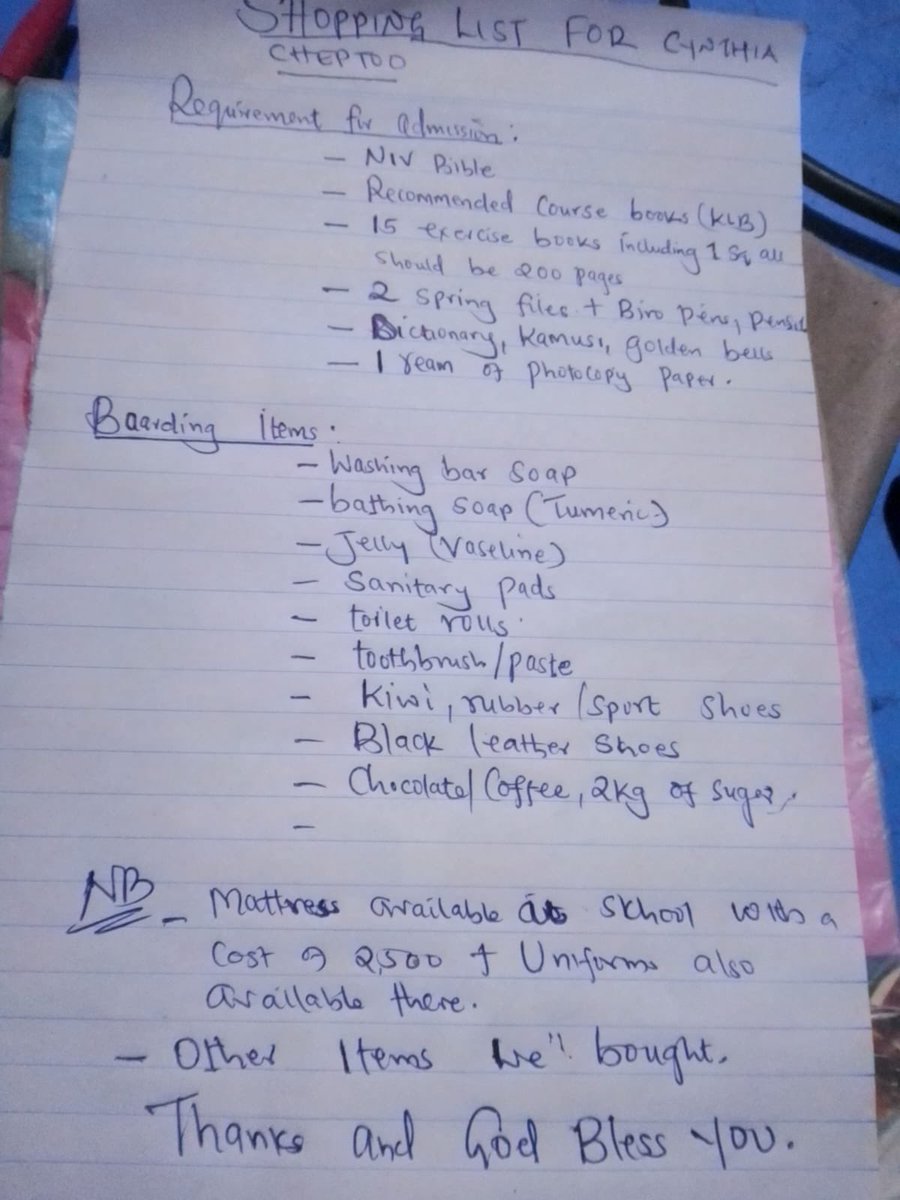 SHOPPING LIST FOR CYNTHIA
CHEPTOO
Requirement for admission:
- NIV Bible
- Recommended Course books (KLB)
- 15 exercise books including 1 Sq all
should be 200 pages
- 2 spring files + Biro pens, pensil
- Dictionary, Kamusi, golden bells
- 1 ream of photocopy paper.
Baarding items:
- Washing bar soap
- bathing soap (Tumeric)
- Jelly (Vaseline)
- Sanitary pads
- toilet rolls
- toothbrush/paste
- Kiwi, rubber/sport shoes
- Black leather shoes
- Chocolate/Coffee, 2kg of Suger,
-
NB - Mattress available at school with a
Cost of 2,500 + Uniforms also
available there.
- Other Items we'll bought.
Thanks and God Bless You.